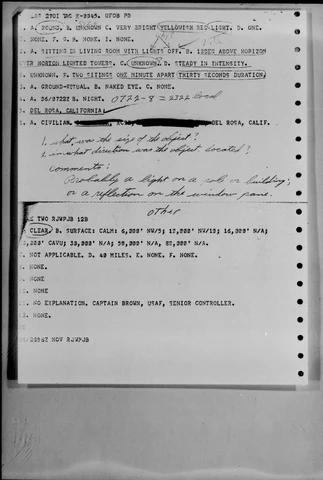 2701 DBS E-8345. UFOB PD
1. A. ROUND. B. UNKNOWN C. VERY BRIGHT YELLOWISH RED LIGHT. D. ONE.
NONE. F. G. H. NONE. I. NONE.
A. SITTING IN LIVING ROOM WITH LIGHTS OFF. B. ABOVE HORIZON
OVER NORTON LIGHTED TOWERS. C. UNKNOWN. D. STEADY IN INTENSITY.
UNKNOWN. F. TWO SITINGS ONE MINUTE APART THIRTY SECONDS DURATION.
A. GROUND-VISUAL. B. NAKED EYE. C. NONE.
A. 26/0722Z B. NIGHT. 0722-8 = 2322 local
DEL ROSA, CALIFORNIA
A. CIVILIAN, DEL ROSA, CALIF.
1. what was the size of the object?
2. in what direction was the object located?
Comments:
Probably a light on a pole or building;
or a reflection on the window pane.
other
TWO RJWPJB 12B
CLEAR. B. SURFACE: CALM; 6,000' NW/5; 12,000' NW/15; 16,000' N/A;
000' CAVU; 30,000' N/A; 50,000' N/A; 80,000' N/A.
NOT APPLICABLE. D. 40 MILES. E. NONE. F. NONE.
NONE.
NONE.
NONE
NO EXPLANATION. CAPTAIN BROWN, USAF, SENIOR CONTROLLER.
NONE.
NOV RJWPJB